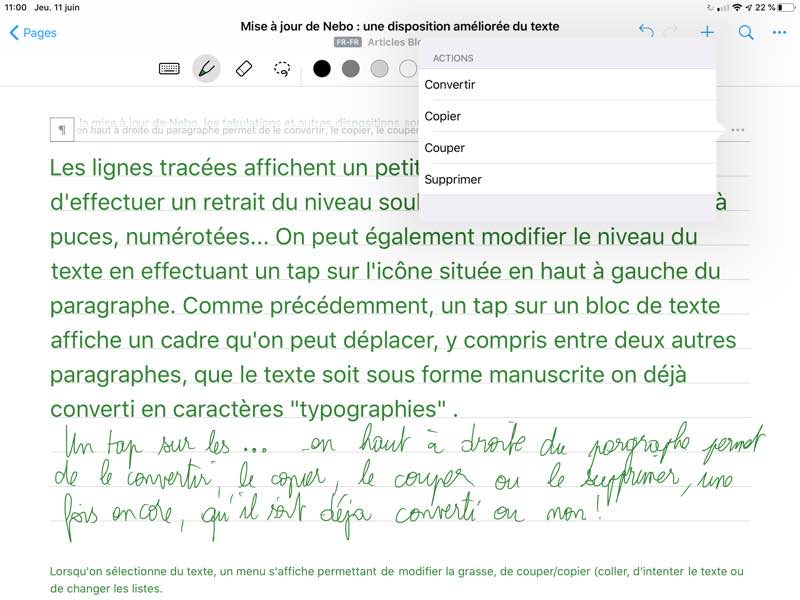 11:00 Jeu. 11 juin 22 %
Pages
Mise à jour de Nebo : une disposition améliorée du texte
FR-FR Articles Blo
ACTIONS
Convertir
Copier
Couper
Supprimer
la mise à jour de Nebo, les tabulations et autres dispositions so
¶ en haut à droite du paragraphe permet de le convertir, le copier, le couper
Les lignes tracées affichent un petit
d'effectuer un retrait du niveau sou à
puces, numérotées... On peut également modifier le niveau du
texte en effectuant un tap sur l'icône située en haut à gauche du
paragraphe. Comme précédemment, un tap sur un bloc de texte
affiche un cadre qu'on peut déplacer, y compris entre deux autres
paragraphes, que le texte soit sous forme manuscrite on déjà
converti en caractères "typographies" .
Un tap sur les ... en haut à droite du pargraphe permet
de le convertir, le copier, le couper ou le supprimer, une
fois encore, qu'il soit déja converti ou non !
Lorsqu'on sélectionne du texte, un menu s'affiche permettant de modifier la grasse, de couper/copier (coller, d'intenter le texte ou
de changer les listes.